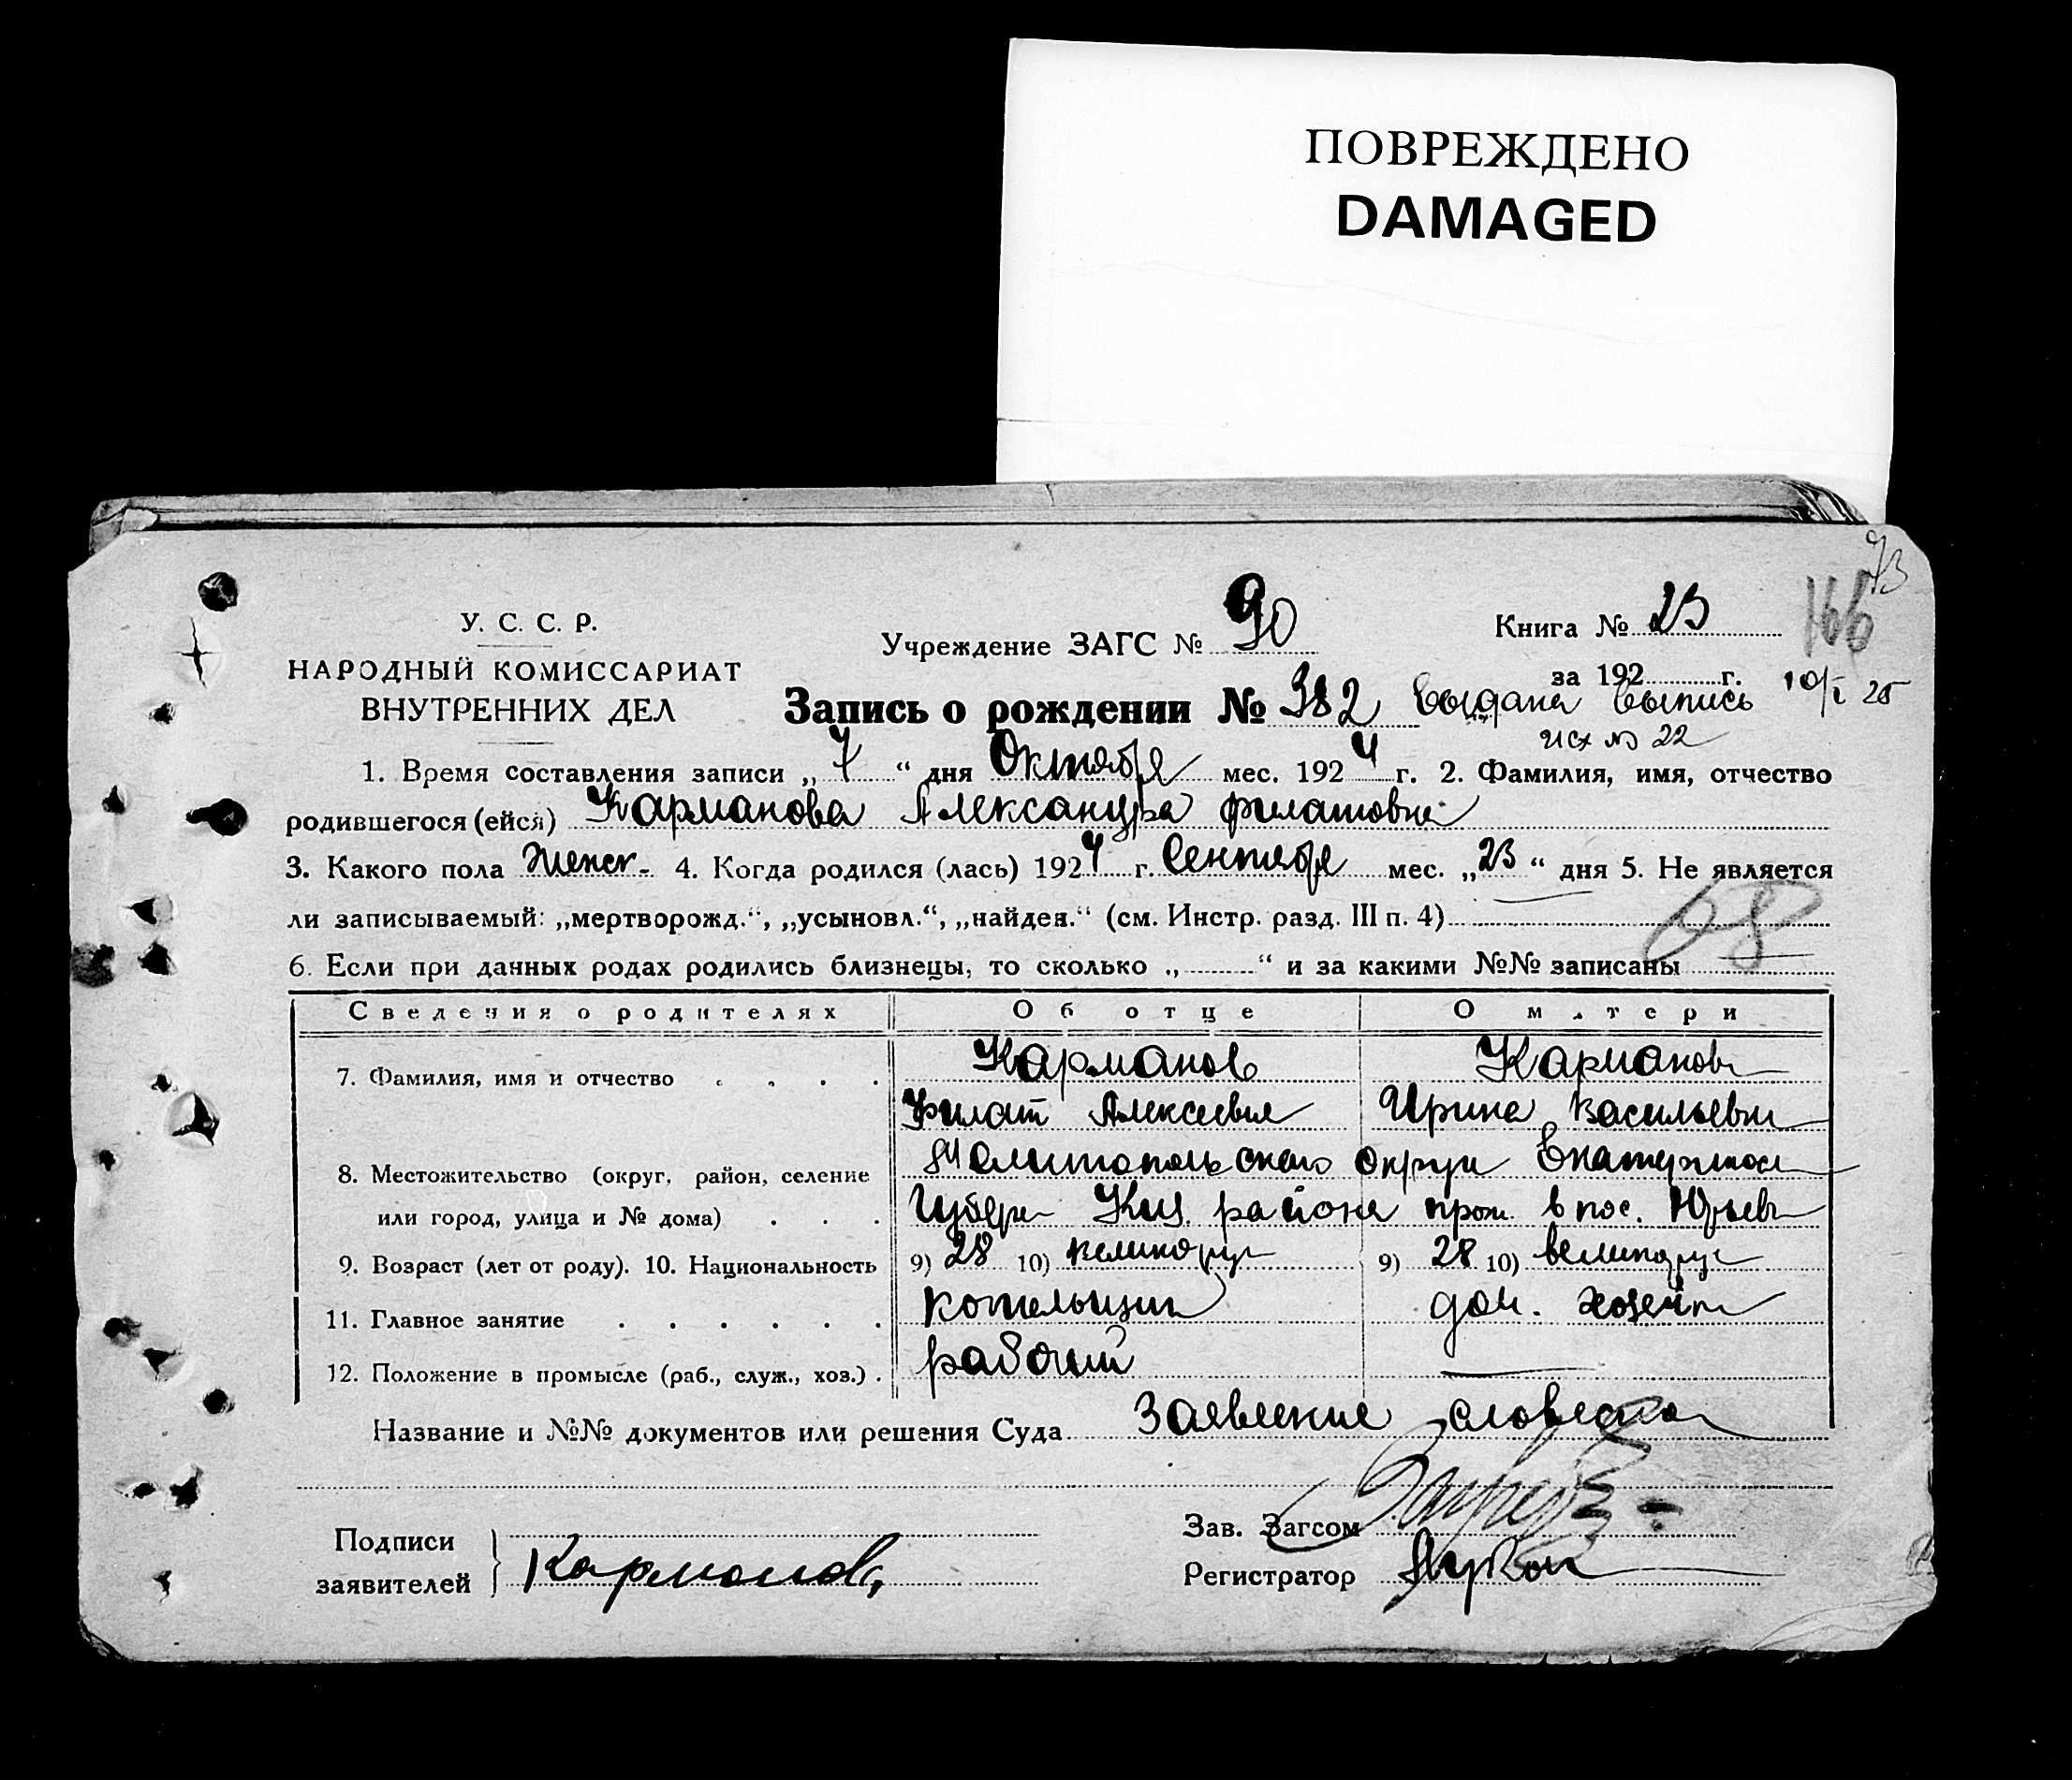 ПОВРЕЖДЕНО
DAMAGED
73
166
У. С. С. Р.
НАРОДНЫЙ КОМИССАРИАТ
ВНУТРЕННИХ ДЕЛ
Учреждение ЗАГС № 90
Книга № 23
за 192 г.
Запись о рождении № 382 Выдана выпись 10/I 25
исх № 22
1. Время составления записи „7“ дня Октября мес. 1924 г. 2. Фамилия, имя, отчество
родившегося (ейся) Карманова Александра Филатовна
3. Какого пола Женск. 4. Когда родился (лась) 1924 г. Сентября мес. „23“ дня 5. Не является
ли записываемый: „мертворожд.“, „усыновл.“, „найден.“ (см. Инстр. разд. III п. 4)
68
6. Если при данных родах родились близнецы, то сколько „ “ и за какими №№ записаны
Сведения о родителях Об отце О матери
7. Фамилия, имя и отчество Карманов Карманова
Филат Алексеевич Ирина Васильевна
8. Местожительство (округ, район, селение Мелитопольского округа Екатериносл
или город, улица и № дома) Губерн района прож. в пос. Юрьев
9. Возраст (лет от роду). 10. Национальность 9) 28 10) великорус 9) 28 10) великорус
11. Главное занятие котельщик дом. хозяйк
12. Положение в промысле (раб., служ., хоз.) рабочий
Название и №№ документов или решения Суда Заявление словесно
Подписи
заявителей Карманов
Зав. Загсом
Регистратор